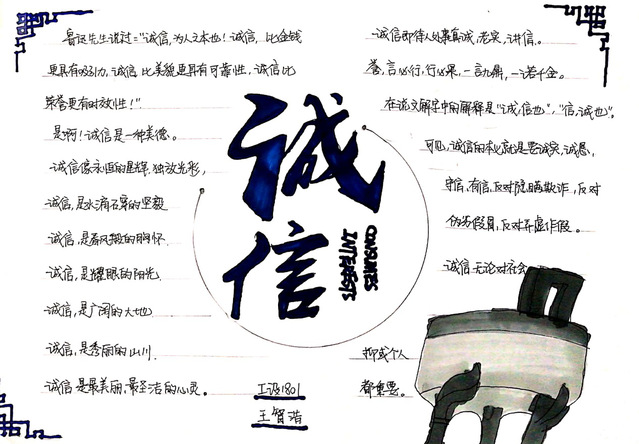 鲁迅先生说过："诚信，为人之本也！诚信，比金钱
更具有吸引力，诚信比美貌更具有可靠性，诚信比
荣誉更有时效性！"
是啊！诚信是一种美德。
诚信像永恒的星辉，独放光彩，
诚信，是水滴石穿的坚毅
诚信，是春风般的胸怀
诚信，是耀眼的阳光
诚信，是广阔的大地
诚信，是秀丽的山川
诚信是最美丽，最圣洁的心灵。
诚信
CONSUMES
INTERESTS
工设1801
王智谐
诚信即待人处事真诚，老实，讲信。
誉，言必行，行必果，一言九鼎，一诺千金。
在说文解字中的解释是"诚，信也"，"信，诚也"。
可见，诚信的本义就是要诚实，诚恳，
守信，有信，反对隐瞒欺诈，反对
伪劣假冒，反对弄虚作假。
诚信无论对社会
抑或个人
都重要。